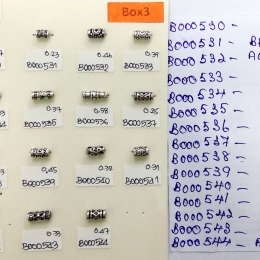 Box3
0.23
0.46
0.39
B000531
B000532
B000533
0.37
0.58
0.25
B000535
B000536
B000537
0.45
0.38
0.31
B000539
B000540
B000541
0.33
0.47
B000543
B000544
B000530-
B000531-
B000532-
B000533-
B000534-
B000535-
B000536-
B000537-
B000538-
B000539-
B000540-
B000541-
B000542-
B000543-
B000544-